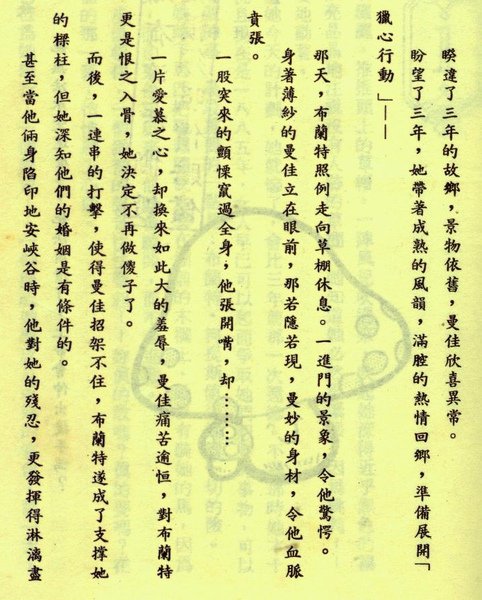 睽違了三年的故鄉，景物依舊，曼佳欣喜異常。
盼望了三年，她帶著成熟的風韻，滿腔的熱情回鄉，準備展開「
獵心行動」——
那天，布蘭特照例走向草棚休息。一進門的景象，令他驚愕。
身著薄紗的曼佳立在眼前，那若隱若現，曼妙的身材，令他血脈
賁張。
一股突來的顫慄竄過全身，他張開嘴，却………
一片愛慕之心，却換來如此大的羞辱，曼佳痛苦逾恒，對布蘭特
更是恨之入骨，她決定不再做傻子了。
而後，一連串的打擊，使得曼佳招架不住，布蘭特遂成了支撐她
的樑柱，但她深知他們的婚姻是有條件的。
甚至當他倆身陷印地安峽谷時，他對她的殘忍，更發揮得淋漓盡